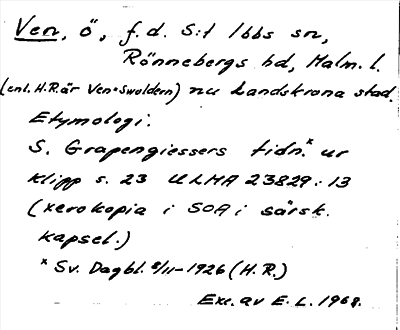 Ven, ö, f.d. S:t Ibbs sn,
Rönnebergs hd, Malm. l.
(enl. H.R. är Ven = Swoldern) nu Landskrona stad.
Etymologi.
S. Grapengiessers tidn.* ur
klipp s. 23 ULMA 23829:13
(xerokopia i SOA i särsk.
kapsel.)
* Sv. Dagbl. 8/11-1926 (H.R.)
Exc. av E.L. 1968.